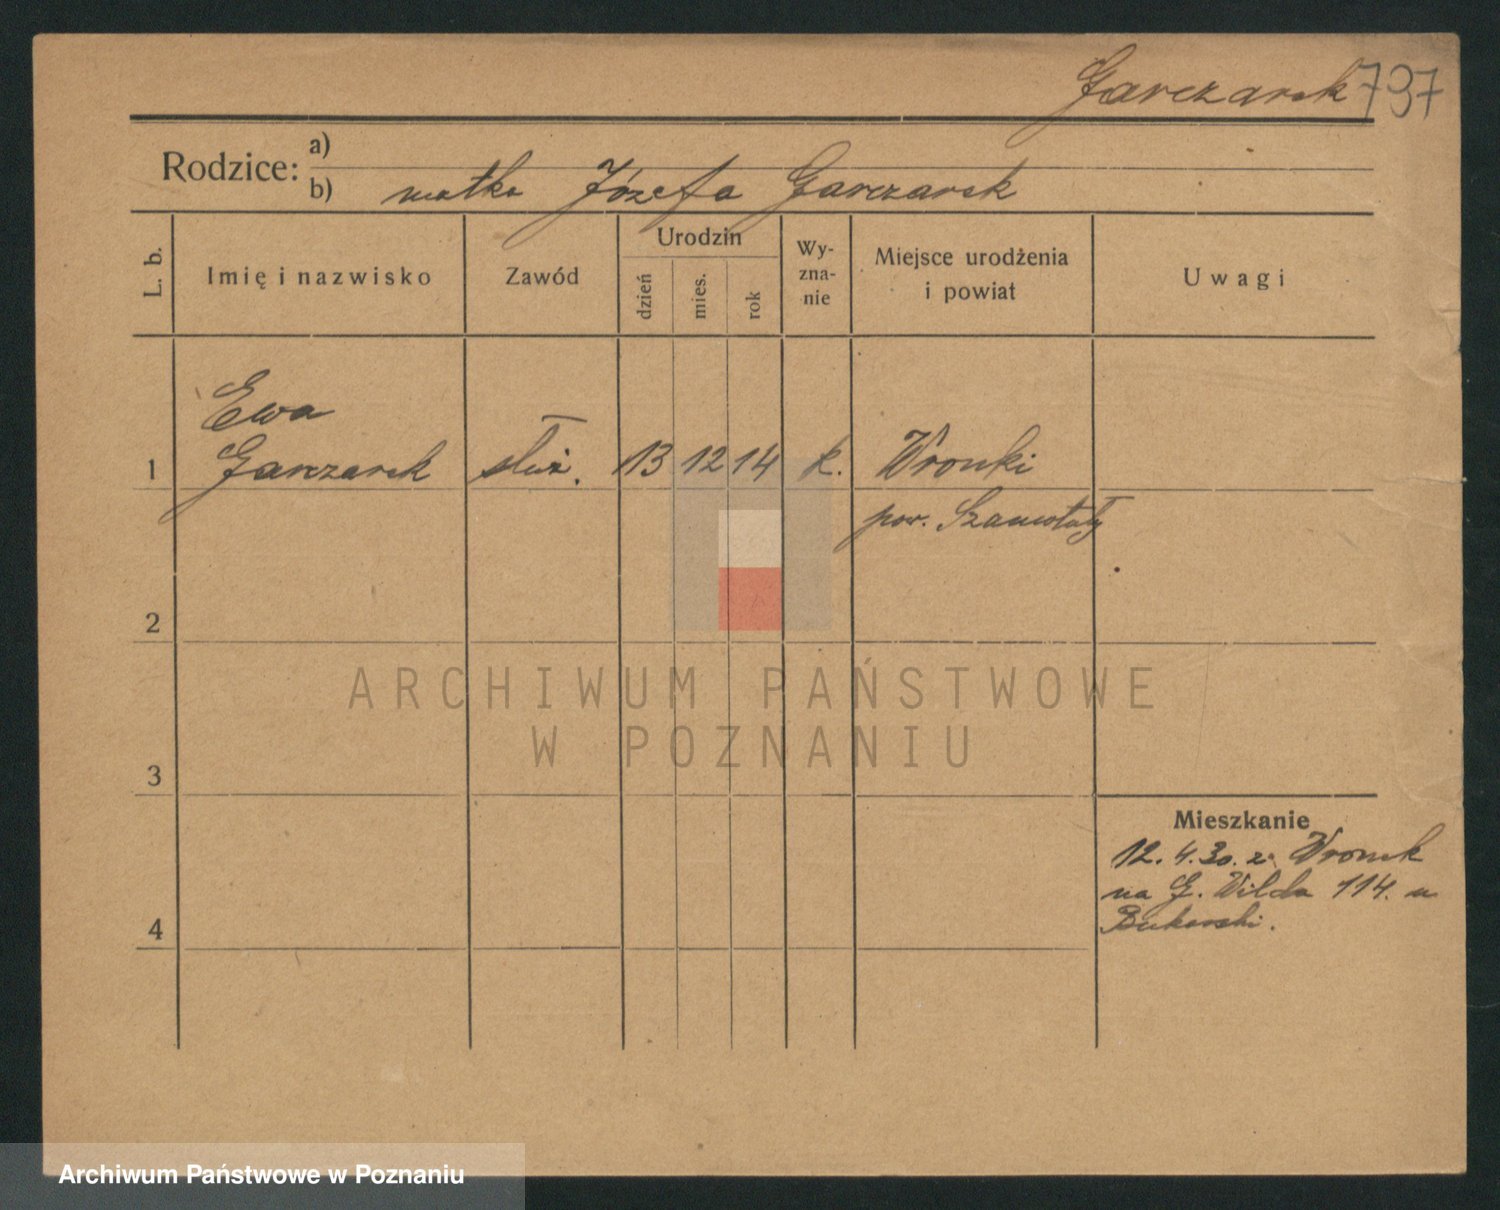 Garczarek 797
Rodzice:
a)
b) matka Józefa Garczarek
L. b.
Imię i nazwisko
Zawód
Urodzin
dzień
mies.
rok
Wy-
zna-
nie
Miejsce urodżenia
i powiat
Uwagi
Ewa
1 Garczarek służ. 13 12 14 k. Wronki
pow. Szamotuły
2
3
4
Mieszkanie
12. 4. 30. z Wronek
na G. Wilda 114. u
Bukowski.
ARCHIWUM PAŃSTWOWE
W POZNANIU
Archiwum Państwowe w Poznaniu